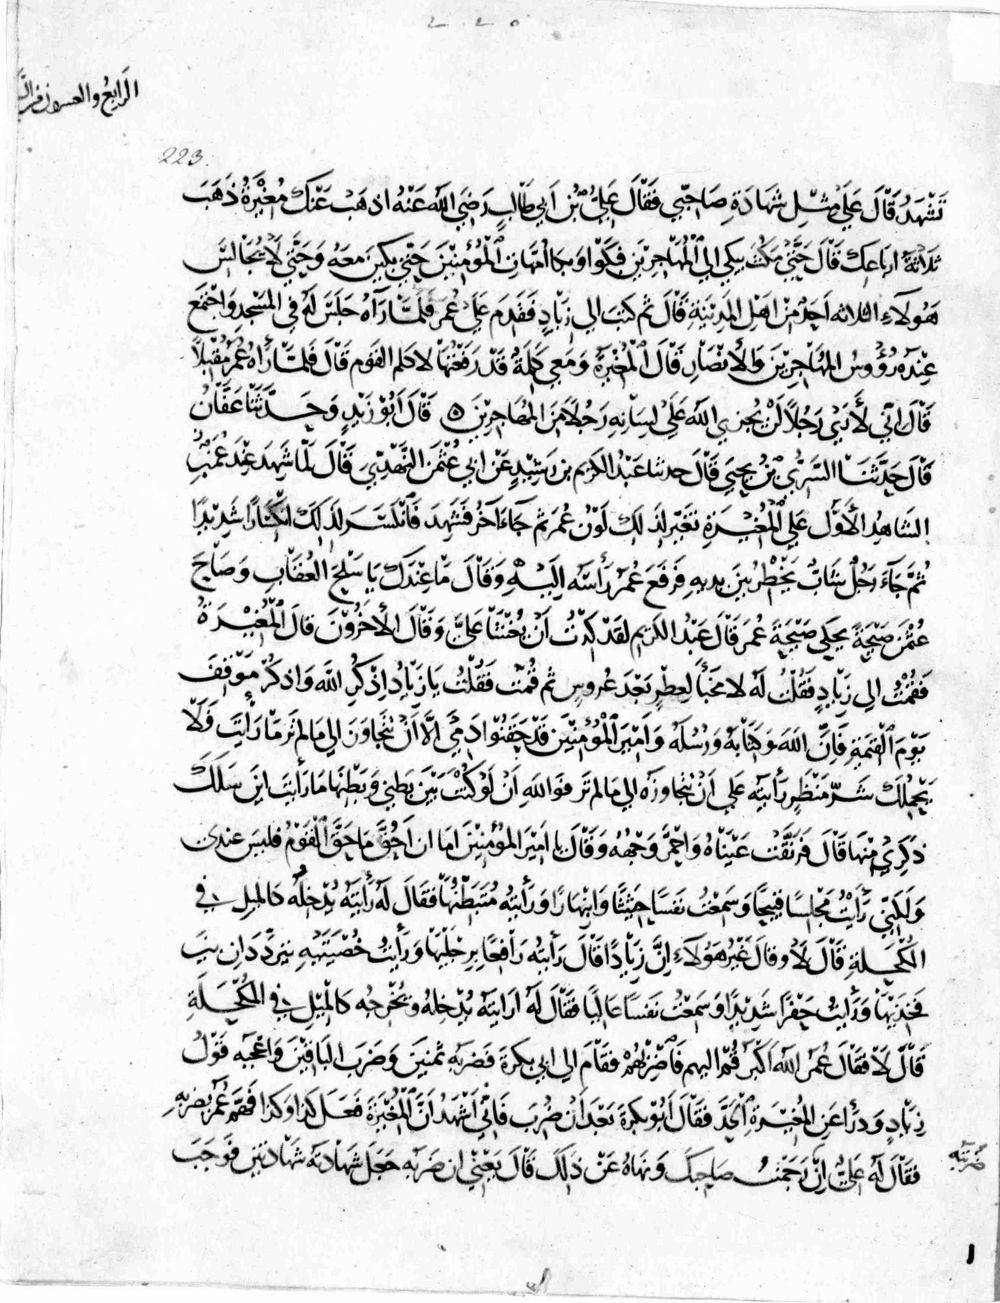 ٢٢٥
الرابع والعشرون من
223.
تَشْهَدُ قَالَ عَلَى مِثْلِ شَهَادَةِ صَاحِبَيَّ فَقَالَ عَلِيُّ بْنُ أَبِي طَالِبٍ رَضِيَ اللَّهُ عَنْهُ اذْهَبْ عَنْكَ مُغِيْرَةُ ذَهَبَ
ثَلَاثَةُ ارباعك قَالَ حَتَّى مَكَثَ يبكي الي الْمُهَاجِرِيْنَ فبَكَوْا وبكا امَّهَات الْمُؤْمِنِيْنَ حَتَّى بكين مَعَهُ وَحَتَّى لَا يُجَالِسَ
هَؤُلَاءِ الثلاثه اَحَدٌ مِنْ اهْلِ الْمَدِيْنَةِ قَالَ ثم كتب الي زِيَادٍ فَقَدِمَ عَلَى عُمَرَ فَلَمَّا رَآهُ جَلَسَ لَهُ في الْمَسْجِدِ وَاجْتَمَعَ
عِنْدَهُ رُؤُوسُ الْمُهَاجِرِيْنَ وَالأَنْصَارِ قَالَ الْمُغِيْرَةُ وَمَعي كَلِمَةٌ قَدْ رَفَعْتُهَا لاكلم القوم قَالَ فَلَمَّا رَأَاهُ عُمَرُ مُقْبِلًا
قَالَ انّي لأَرَى رَجُلًا لَنْ يُخزي اللهُ عَلَى لِسَانِهِ رَجُلًا مِنَ الْمُهَاجِرِيْنَ ٥ قَالَ اَبُوْ زَيْدٍ وَحَدَّثَنَا عَفَّانُ
قَالَ حَدَّثَنَا السَّرِيُّ بْنُ يَحْيَى قَالَ حدثنا عَبْدُ الكريم بن رَشِيْدٍ عَنْ ابي عُثْمَنَ النَّهْدِيّ قَالَ لَمَّا شَهِدَ عِنْدَ عُمَرَ
الشَّاهِدُ الأَوَّل عَلَى الْمُغِيْرَةِ تَغَيَّرَ لِذَلِكَ لَوْنُ عُمَرَ ثم جَاءَ آخَرُ فَشَهِدَ فَانْكَسَرَ لِذَلِكَ انْكِسَارًا شَدِيْدًا
ثُمَّ جَاءَ رَجُلٌ شَابٌّ يَخْطُرُ بَيْنَ يديهِ فَرَفَعَ عُمَرُ رَأْسَهُ اِلَيْهِ وَقَالَ مَا عِنْدَكَ يَا سَلْحَ الْعُقَابِ وَصَاحَ
عُثْمَنُ صَيْحَةً يحكي صَيْحَةَ عُمَرَ قَالَ عَبْدُ الكَرِيمِ لَقَدْ كِدْتُ اَنْ يُغْشَى عَلَيَّ وَقَالَ الأَخَرُوْنَ قَالَ الْمُغِيْرَةُ
فَقُمْتُ الي زِيَادٍ فَقُلْتُ لَهُ لا مَخْبَأَ لِعِطْرٍ بَعْدَ عَرُوسٍ ثم قُمْتُ فَقُلْتُ يَا زِيَادُ اذْكُرِ اللهَ وَاذْكُرْ مَوْقِفَ
يَوْمَ الْقِيَمَةِ فَاِنَّ اللهَ وَكِتَابَهُ وَرَسُلَهُ وَاَمِيْرَ الْمُؤْمِنِيْنَ قَدْ حَقَنُوا دَمِي اِلَّا اَنْ تُجَاوِزَ الي مَا لَمْ تَرَ مَا رَأَيْتَ فَلَا
يَحْمِلْكَ شَرُّ مَنْظَرٍ رَأَيْتَهُ عَلَى اَنْ تُجَاوِزَهُ الي مَا لم تَرَ فَوَاللهِ اَنْ لَوْ كُنْتَ بَيْنَ بَطني وَبَطْنِهَا مَا رَأَيْتَ اَيْنَ سَلَكَ
ذَكَرِي مِنْهَا قَالَ فَرَنَّقَتْ عَيْنَاهُ وَاحْمَرَّ وَجْهُهُ وَقَالَ يا اَمِيْرَ الْمُؤْمِنِيْنَ اما ان اَحُقَّ مَا حَقَّ الْقَوْمُ فليس عِنْدِي
وَلَكِنِّي رَأَيْتُ مَجْلِسًا قَبِيْحًا وَسَمِعْتُ نَفَسًا حَثِيْثًا وَانْبِهَارًا وَرَأَيْتُهُ مُتَبَطِّنَهَا فَقَالَ لَهُ رَأَيْتَهُ يُدْخِلُهُ كالميل في
الْمُكْحُلَةِ قَالَ لَا وقالَ غَيْرُ هَؤُلَاءِ اِنَّ زِيَادًا قَالَ رَأَيْتُهُ رَافِعًا بِرِجْلَيْهَا وَرَأَيْتُ خُصْيَتَيْهِ تتردَّدَانِ بين
فَخِذَيْهَا وَرَأَيْتُ حَفْزًا شَدِيْدًا وَسَمِعْتُ نَفَسًا عَالِيًا فَقَالَ لَهُ ارَأَيْتَهُ يُدْخِلُهُ وَيُخْرِجُه كَالْمِيْلِ في الْمُكْحُلَةِ
قَالَ لَا فَقَالَ عُمَرُ اللهُ اكْبَرُ قُمْ اليهم فَاضْرِبْهُمْ فقَامَ الي ابي بكرَةَ فَضَرَبَهُ ثمنين وَضَرَبَ الْبَاقِيْنَ وَاعْجَبَه قَوْلُ
زِيَادٍ وَدَرَأ عَنِ المُغِيْرَةِ الْحَدَّ فَقَالَ اَبُوْ بَكْرَةَ بَعْدَ اَنْ ضُرِبَ فَاِنّي اَشْهَدُ اَنَّ الْمُغِيْرَةَ فعَلَ كَذَا وَكَذَا فَهَمَّ عُمَرُ بضربِهِ
فقَالَ لَهُ عَلِيٌّ اِنْ رَجَمْتَ صَاحِبَكَ وَنَهَاهُ عَنْ ذَلِكَ قَالَ يَعْنِي ان ضَرَبَهُ جَعَلَ شَهَادَتَهُ شَهَادَتَيْنِ فَوَجَبَ
ضَرَبْتَه
١